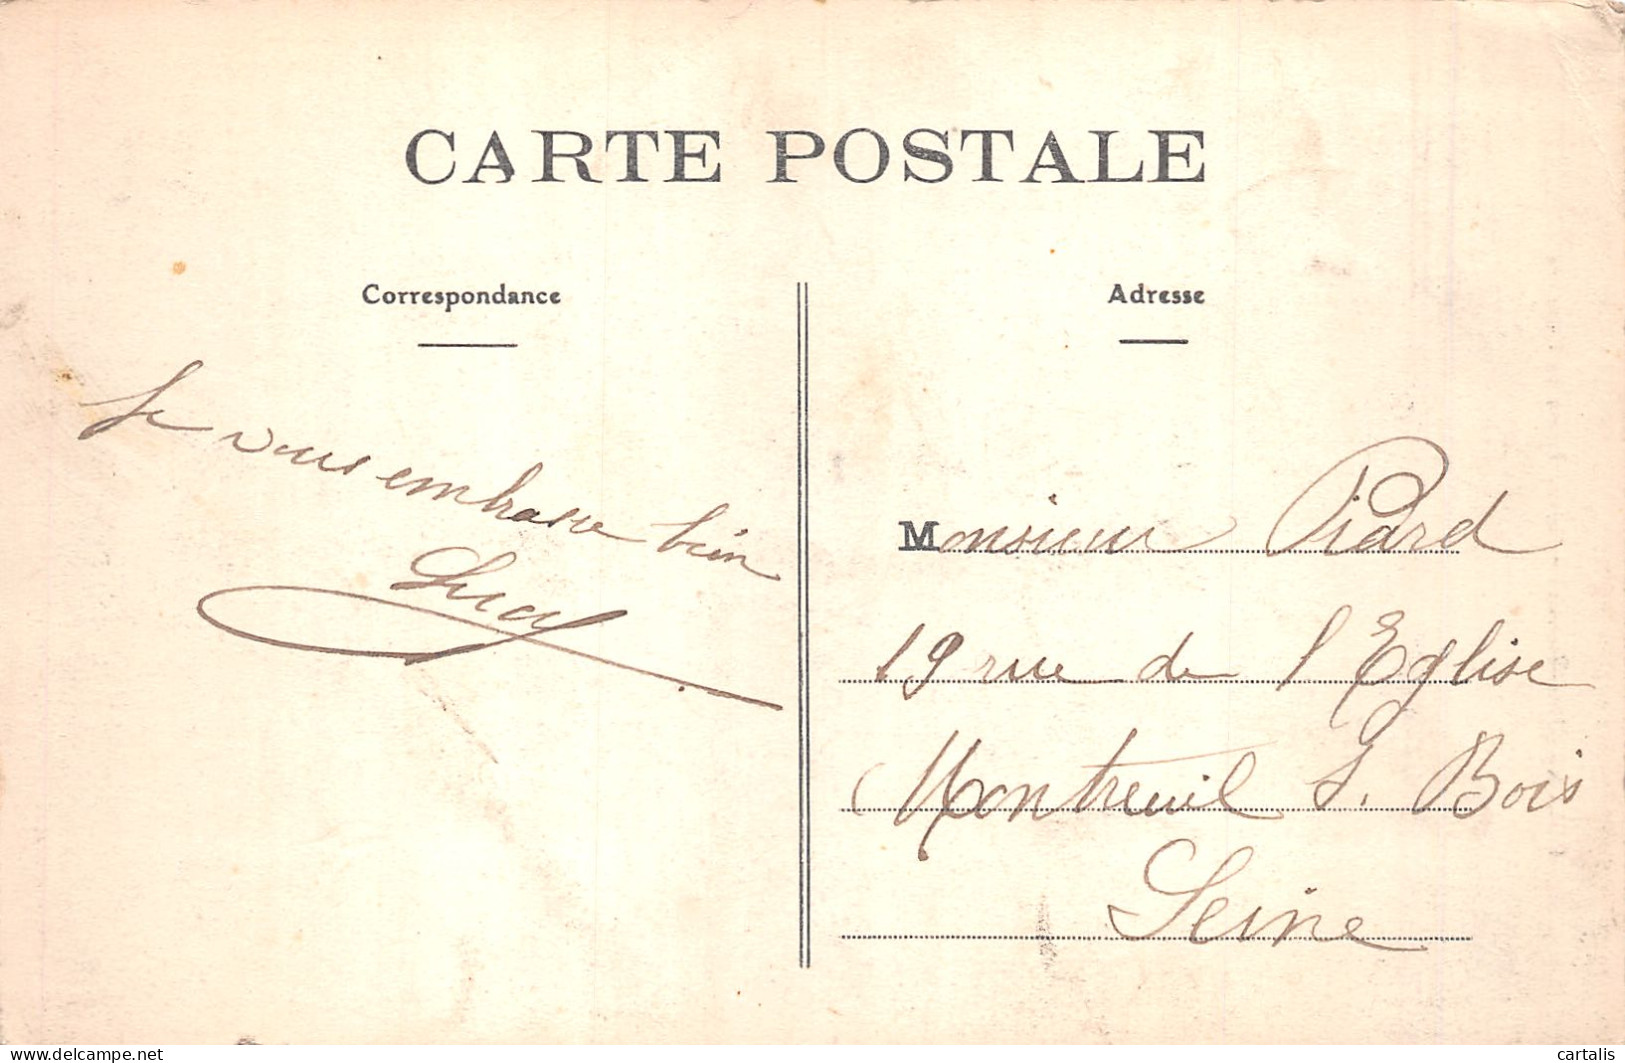 CARTE POSTALE
Correspondance
Adresse
Je vous embrasse bien
Lucy
Monsieur Piard
19 rue de l'Eglise
Montreuil s. Bois
Seine
delcampe.net
cartalis